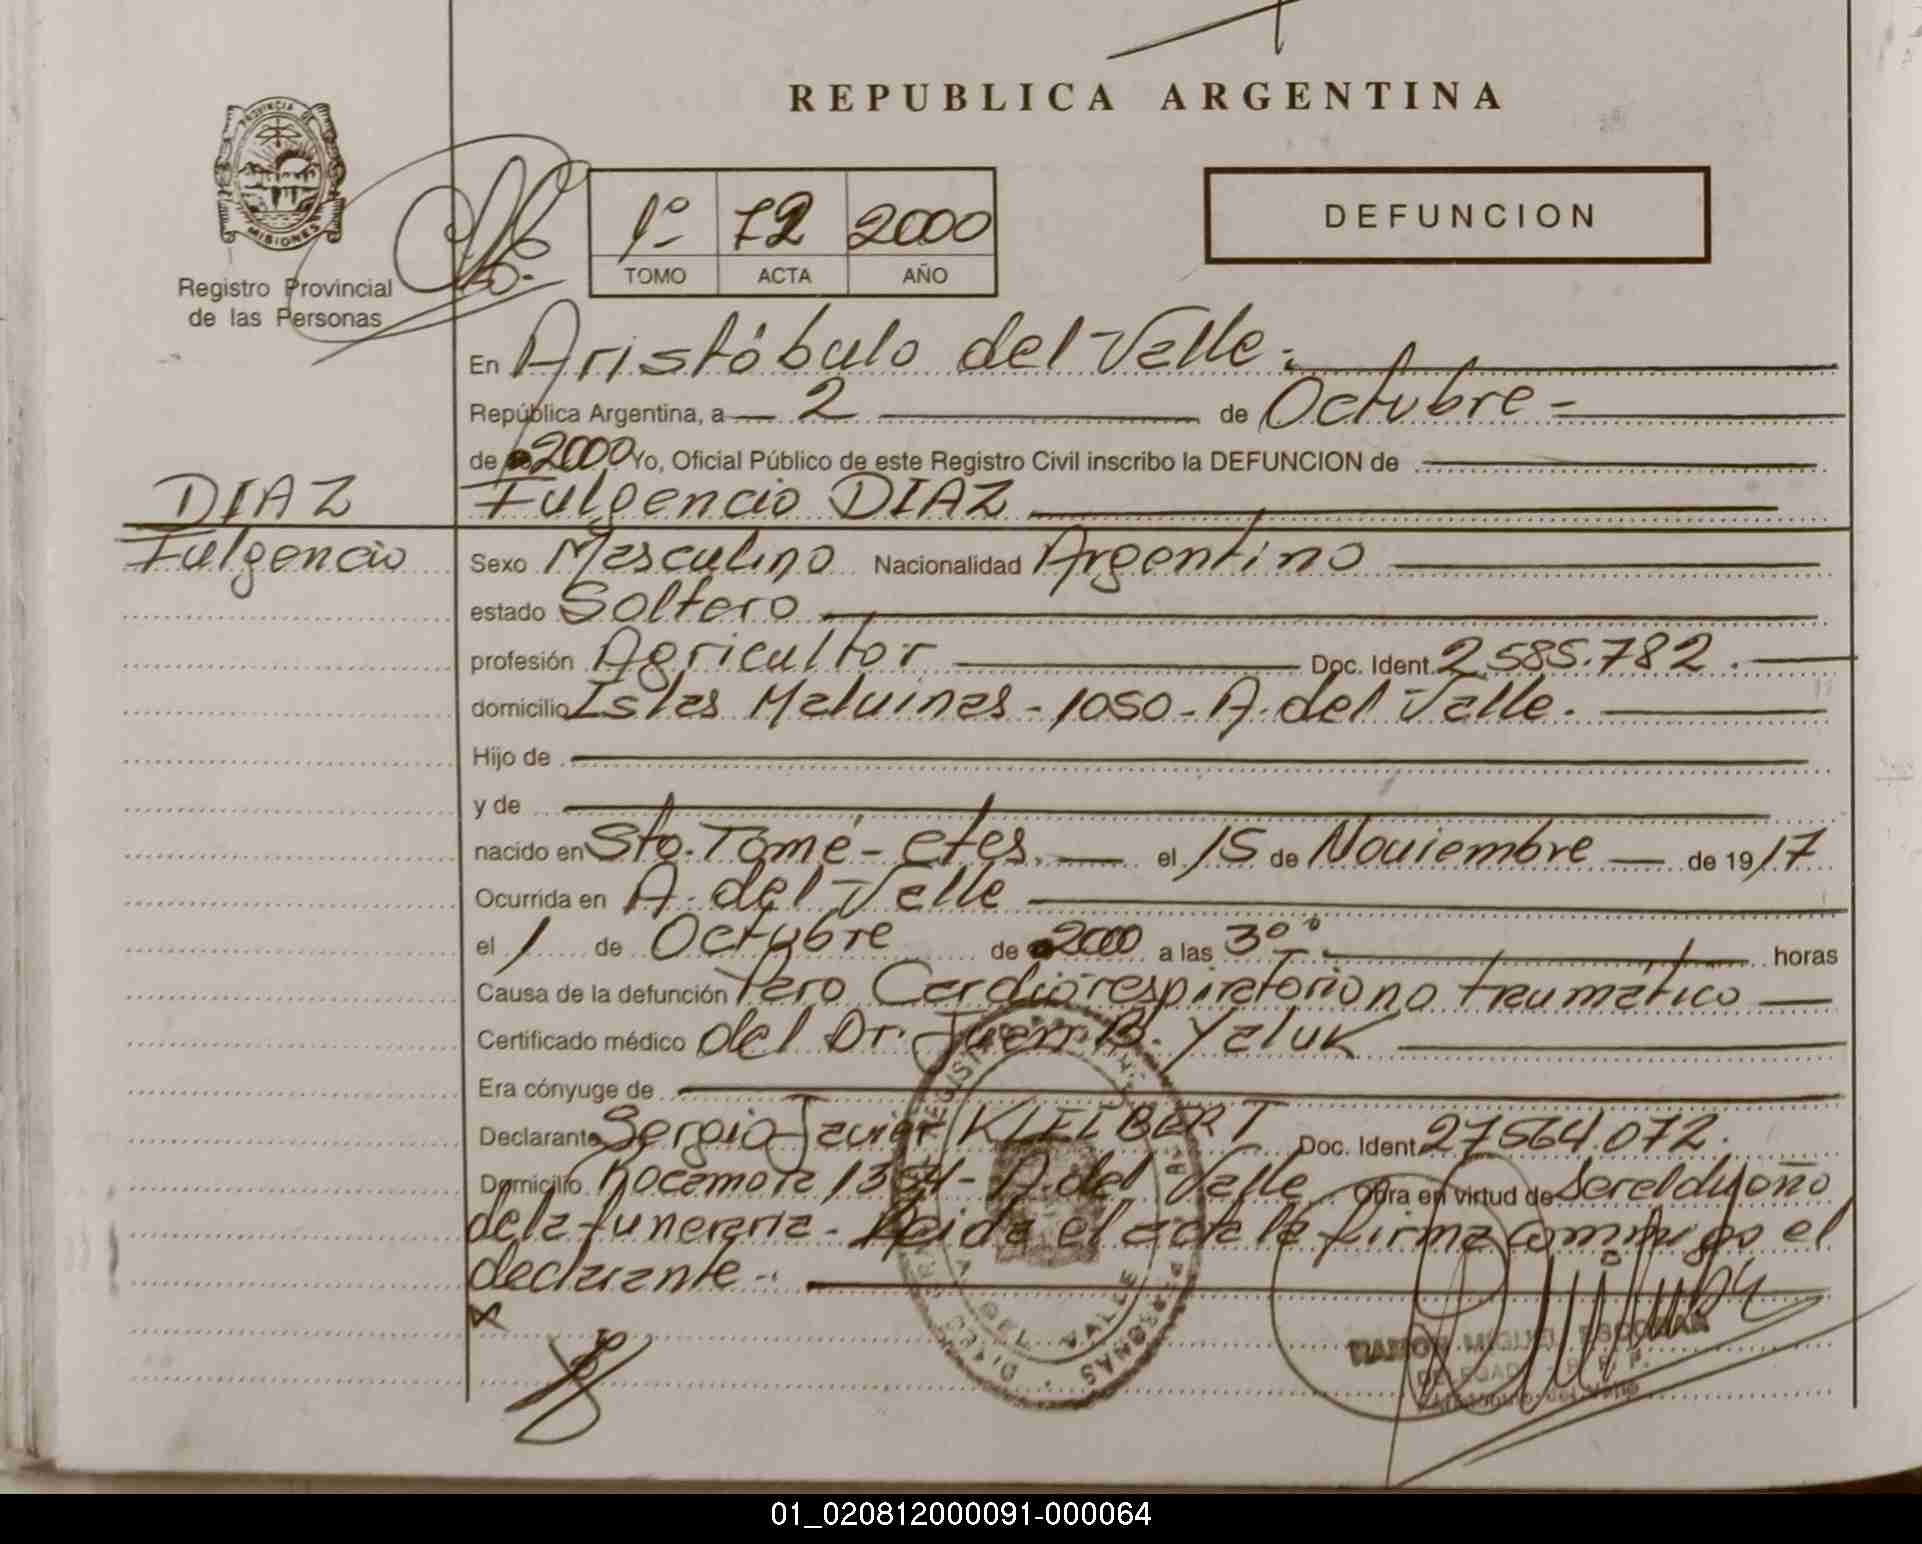 REPUBLICA ARGENTINA
PROVINCIA DE
MISIONES
Registro Provincial
de las Personas
1º 72 2000
TOMO ACTA AÑO
DEFUNCION
En Aristóbulo del Valle.
República Argentina, a 2 de Octubre
de 2000 Yo, Oficial Público de este Registro Civil inscribo la DEFUNCION de
DIAZ
Fulgencio
Fulgencio DIAZ
Sexo Masculino Nacionalidad Argentino
estado Soltero
profesión Agricultor Doc. Ident. 2.585.782.
domicilio Islas Malvinas - 1050 - A. del Valle.
Hijo de
y de
nacido en Sto. Tomé - ctes. el 15 de Noviembre de 1917
Ocurrida en A. del Valle
el 1 de Octubre de 2000 a las 3⁰⁰ horas
Causa de la defunción Paro Cardiorespiratorio no traumatico
Certificado médico del Dr. Juan B. Yaluk
Era cónyuge de
Declarante Sergio Javier KLEIBERT Doc. Ident. 27564.072.
Domicilio Rocamora 1354 - A. del Valle Obra en virtud de Ser el dueño
de la funeraria - Leida el acta la firma conmigo el
declarante.
RAMON MIGUEL ESCOBAR
DELEGADO R. P. P.
Aristobulo del Valle
A. DEL VALLE
01_020812000091-000064